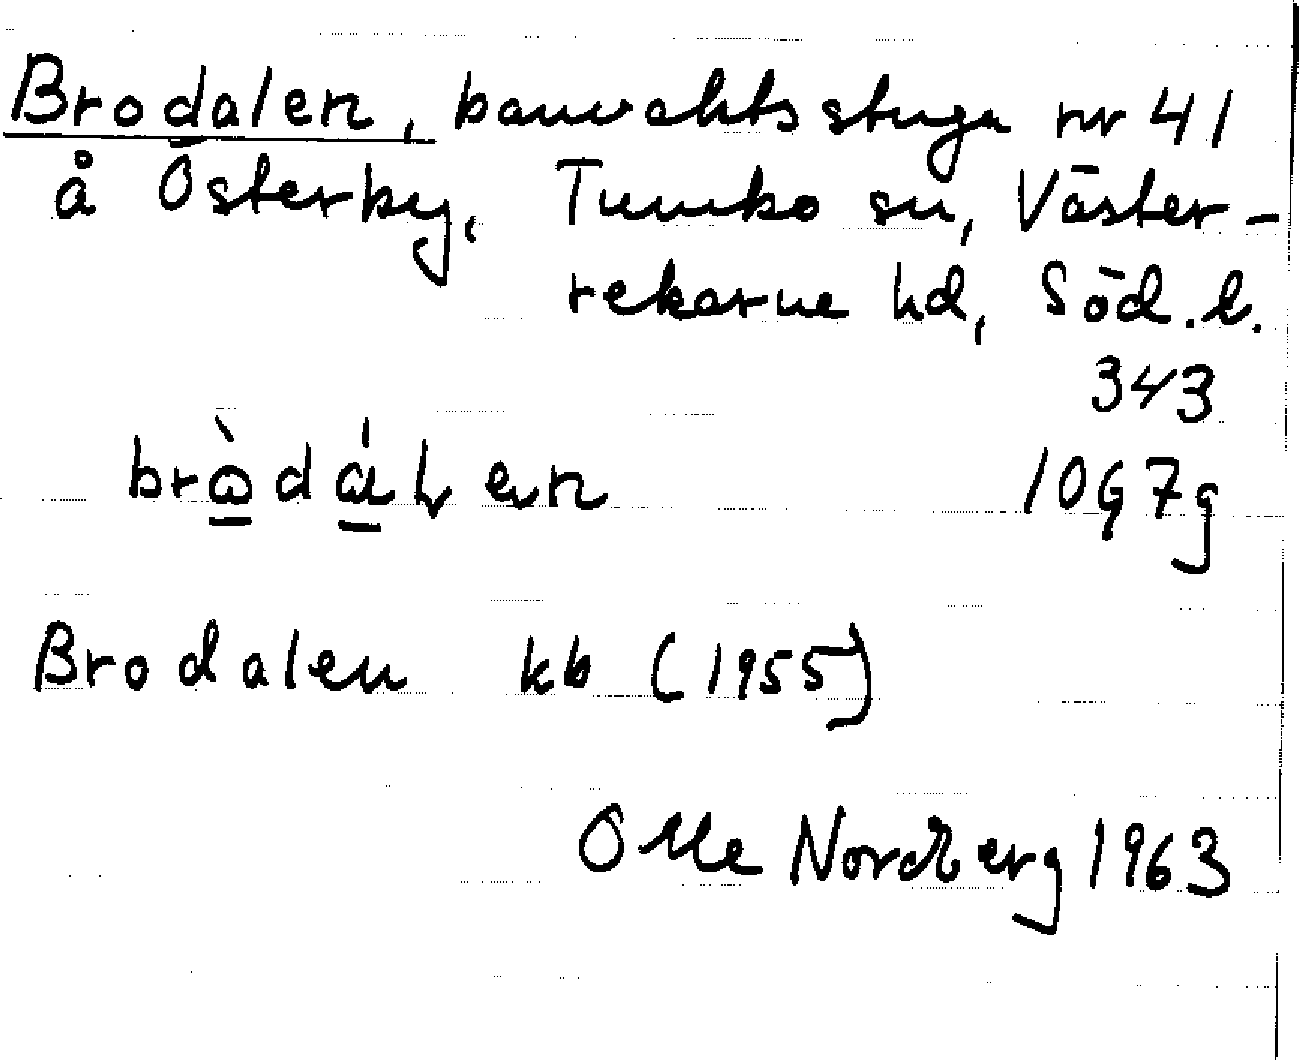 Brodalen, banvaktsstuga nr 41
å Österby, Tumbo sn, Väster-
rekarne hd, Söd. l.
343
10G7g
Brodalen kb (1955)
Olle Nordberg 1963